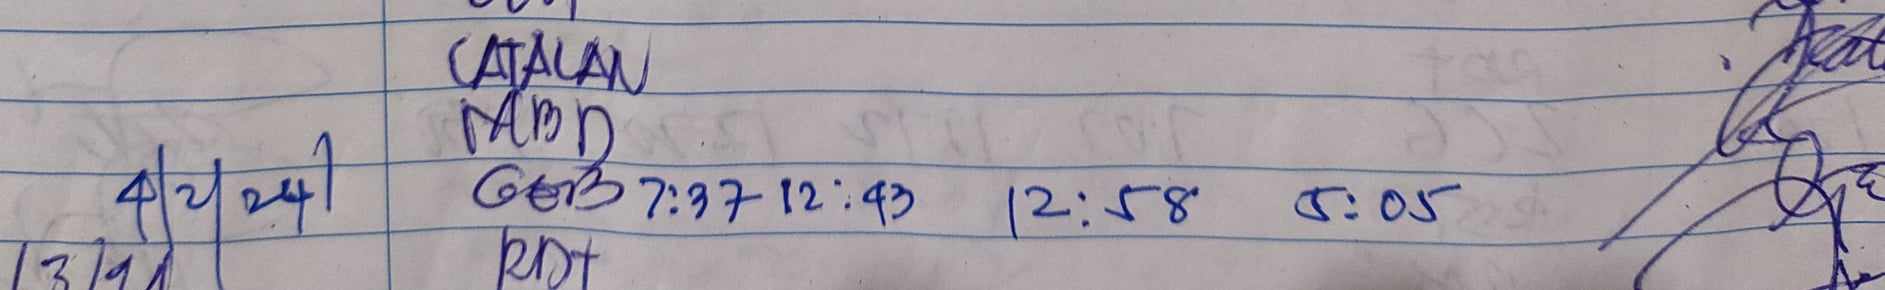 CATALAN
MBD
4/2/24 GEB 7:37 12:43 12:58 5:05
RDT